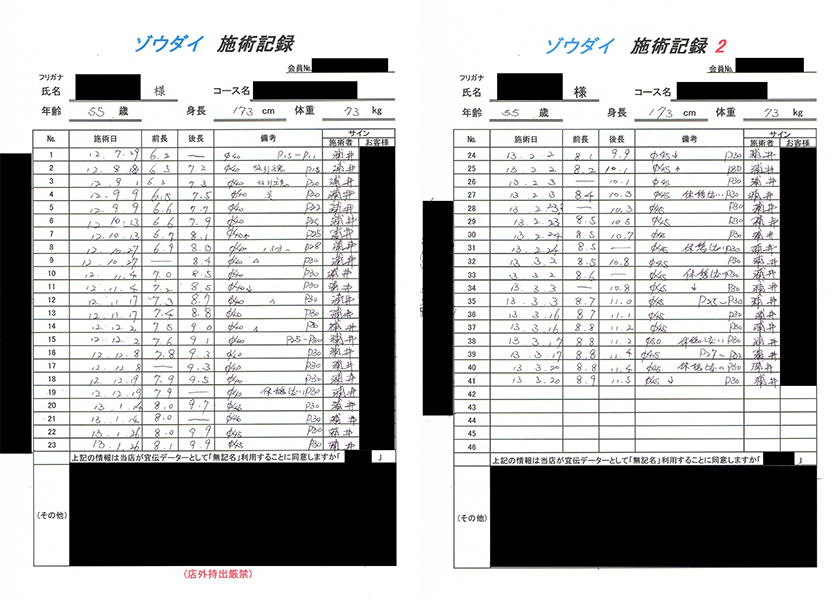 ゾウダイ 施術記録
会員No.
フリガナ
氏名 様 コース名
年齢 55 歳 身長 173 cm 体重 73 kg
No. 施術日 前長 後長 備考 サイン
施術者 お客様
1 12.7.29 6.2 — φ40 P15~P11 浦井
2 12.8.18 6.3 7.2 φ40 P15 浦井
3 12.9.1 6.3 7.3 φ40 P20 浦井
4 12.9.9 6.5 7.5 φ40 P20 浦井
5 12.9.9 6.6 7.7 φ40 P22 浦井
6 12.10.13 6.6 7.9 φ40 P25 浦井
7 12.10.13 6.7 8.1 φ40 P25 浦井
8 12.10.27 6.9 8.0 φ40 P28 浦井
9 12.10.27 — 8.4 φ40 P30 浦井
10 12.11.4 7.0 8.5 φ40 P30 浦井
11 12.11.4 7.2 8.5 φ40↓ P30 浦井
12 12.11.17 7.3 8.7 φ40 P30 浦井
13 12.11.17 7.4 8.8 φ40 P30 浦井
14 12.12.2 7.5 9.0 φ40 P30 浦井
15 12.12.2 7.6 9.1 φ40 P25~P30 浦井
16 12.12.8 7.8 9.3 φ40 P30 浦井
17 12.12.8 — 9.3 φ40 P30 浦井
18 12.12.19 7.9 9.5 φ40 P30 浦井
19 12.12.19 7.9 — φ40 P30 浦井
20 13.1.14 8.0 9.7 φ45 P30 浦井
21 13.1.14 8.0 — φ45 P30 浦井
22 13.1.26 8.0 9.9 φ45 P30 浦井
23 13.1.26 8.1 9.9 φ45 P30 浦井
上記の情報は当店が宣伝データーとして「無記名」利用することに同意しますか「 」
(その他)
(店外持出厳禁)
ゾウダイ 施術記録 2
会員No.
フリガナ
氏名 様 コース名
年齢 55 歳 身長 173 cm 体重 73 kg
No. 施術日 前長 後長 備考 サイン
施術者 お客様
24 13.2.2 8.1 9.9 φ45↓ P30 浦井
25 13.2.2 8.2 10.1 φ45↑ P30 浦井
26 13.2.3 — 10.1 φ45 P30 浦井
27 13.2.3 8.4 10.3 φ45 P30 浦井
28 13.2.23 — 10.3 φ45 P30 浦井
29 13.2.23 8.5 10.5 φ45 P30 浦井
30 13.2.24 8.5 10.7 φ45 P30 浦井
31 13.2.24 8.5 — φ45 P30 浦井
32 13.3.2 8.5 10.8 φ45 P30 浦井
33 13.3.2 8.6 — φ45 P30 浦井
34 13.3.3 — 10.8 φ45 ↓ P30 浦井
35 13.3.3 8.7 11.0 φ45 P25~P30 浦井
36 13.3.16 8.7 11.1 φ45 P30 浦井
37 13.3.16 8.8 11.2 φ45 P30 浦井
38 13.3.17 8.8 11.2 φ50 P30 浦井
39 13.3.17 8.8 11.4 φ45 浦井
40 13.3.20 8.8 11.4 φ45 P30 浦井
41 13.3.20 8.9 11.5 φ45 ↓ P30 浦井
42
43
44
45
46
上記の情報は当店が宣伝データーとして「無記名」利用することに同意しますか「 」
(その他)